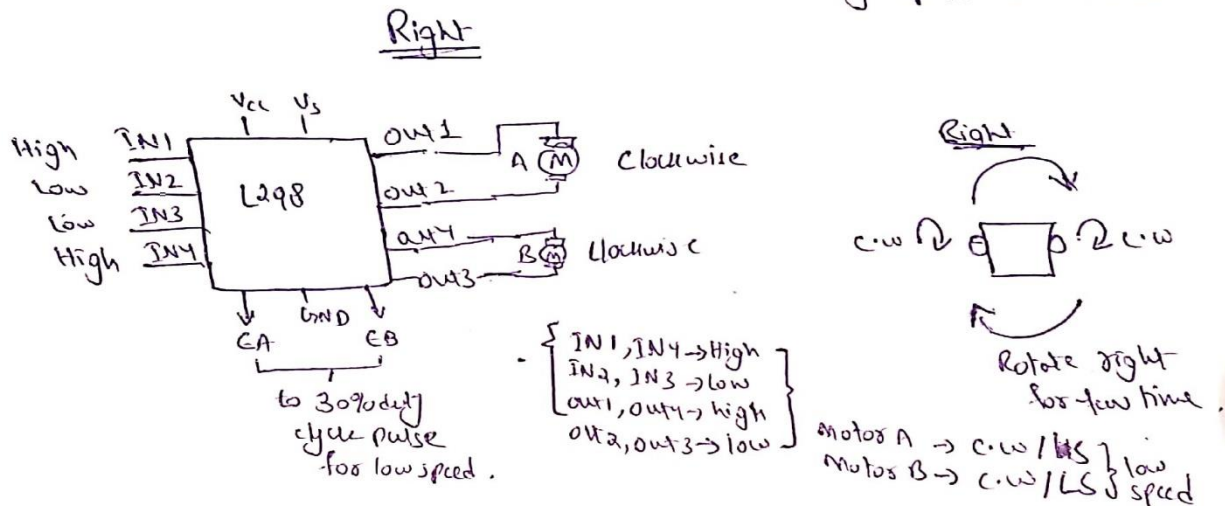 Right
Vcc Vs
High IN1
Low IN2
Low IN3
High IN4
L298
OUT1
OUT2
OUT4
OUT3
A M Clockwise
B M Clockwise
EA GND EB
to 30% duty
cycle pulse
for low speed.
IN1, IN4 → High
IN2, IN3 → low
out1, out4 → high
out2, out3 → low
Right
C.W C.W
Rotate right
for few time.
Motor A → C.W / LS
Motor B → C.W / LS
low
speed